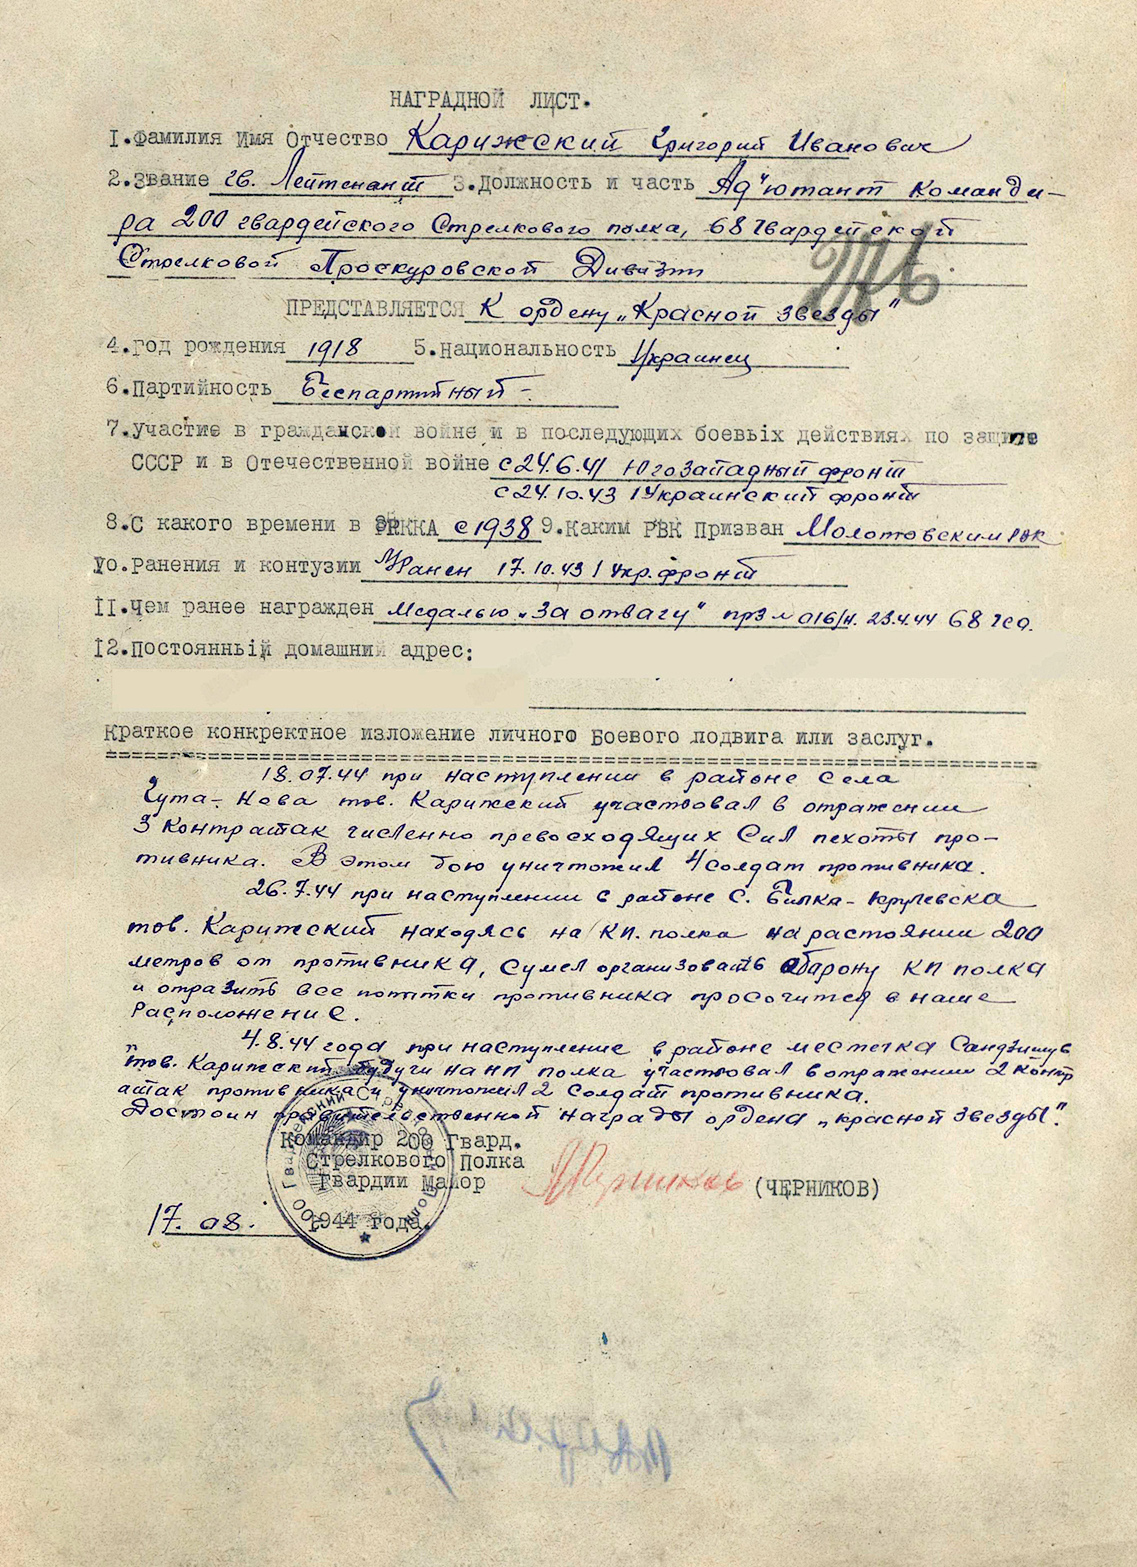 НАГРАДНОЙ ЛИСТ.
I.Фамилия Имя Отчество Карижский Григорий Иванович
2.Звание гв. Лейтенант 3.Должность и часть Ад"ютант Команди-
ра 200 гвардейского Стрелкового полка, 68 гвардейской
Стрелковой Проскуровской Дивизии
246
ПРЕДСТАВЛЯЕТСЯ К ордену „Красной звезды"
4.год рождения 1918 5.Национальность Украинец
6.Партийность Беспартийный -
7.участие в гражданской войне и в последующих боевых действиях по защите
СССР и в Отечественной войне с 24.6.41 Югозападный фронт
с 24.10.43 1 Украинский фронт
8.С какого времени в РККА с 1938 9.Каким РВК Призван Молотовским РВК
Io.Ранения и контузии Ранен 17.10.43 1 Укр. фронт
II.Чем ранее награжден Медалью „За отвагу" пр з л 016/н. 23.4.44 68 гсд.
I2.Постоянный домашний адрес:
Краткое конкректное изложение личного Боевого подвига или заслуг.
18.07.44 при наступлении в районе села
Гута-Нова тов. Карижский участвовал в отражении
3 контратак численно превосходящих сил пехоты про-
тивника. В этом бою уничтожил 4 солдат противника.
26.7.44 при наступлении в районе с. Билка-Крулевска
тов. Карижский находясь на КП. полка на растоянии 200
метров от противника, сумел организовать оборону КП полка
и отразить все потытки противника просочится в наше
Расположение.
4.8.44 года при наступление в районе местечка Сандзишув
тов. Карижский будучи на НП полка участвовал в отражении 2 контр
атак противника и уничтожил 2 солдат противника.
Достоин правительственной награды ордена „красной звезды".
Командир 200 Гвард.
Стрелкового Полка
Гвардии Майор (ЧЕРНИКОВ)
17. 08. 1944 года.